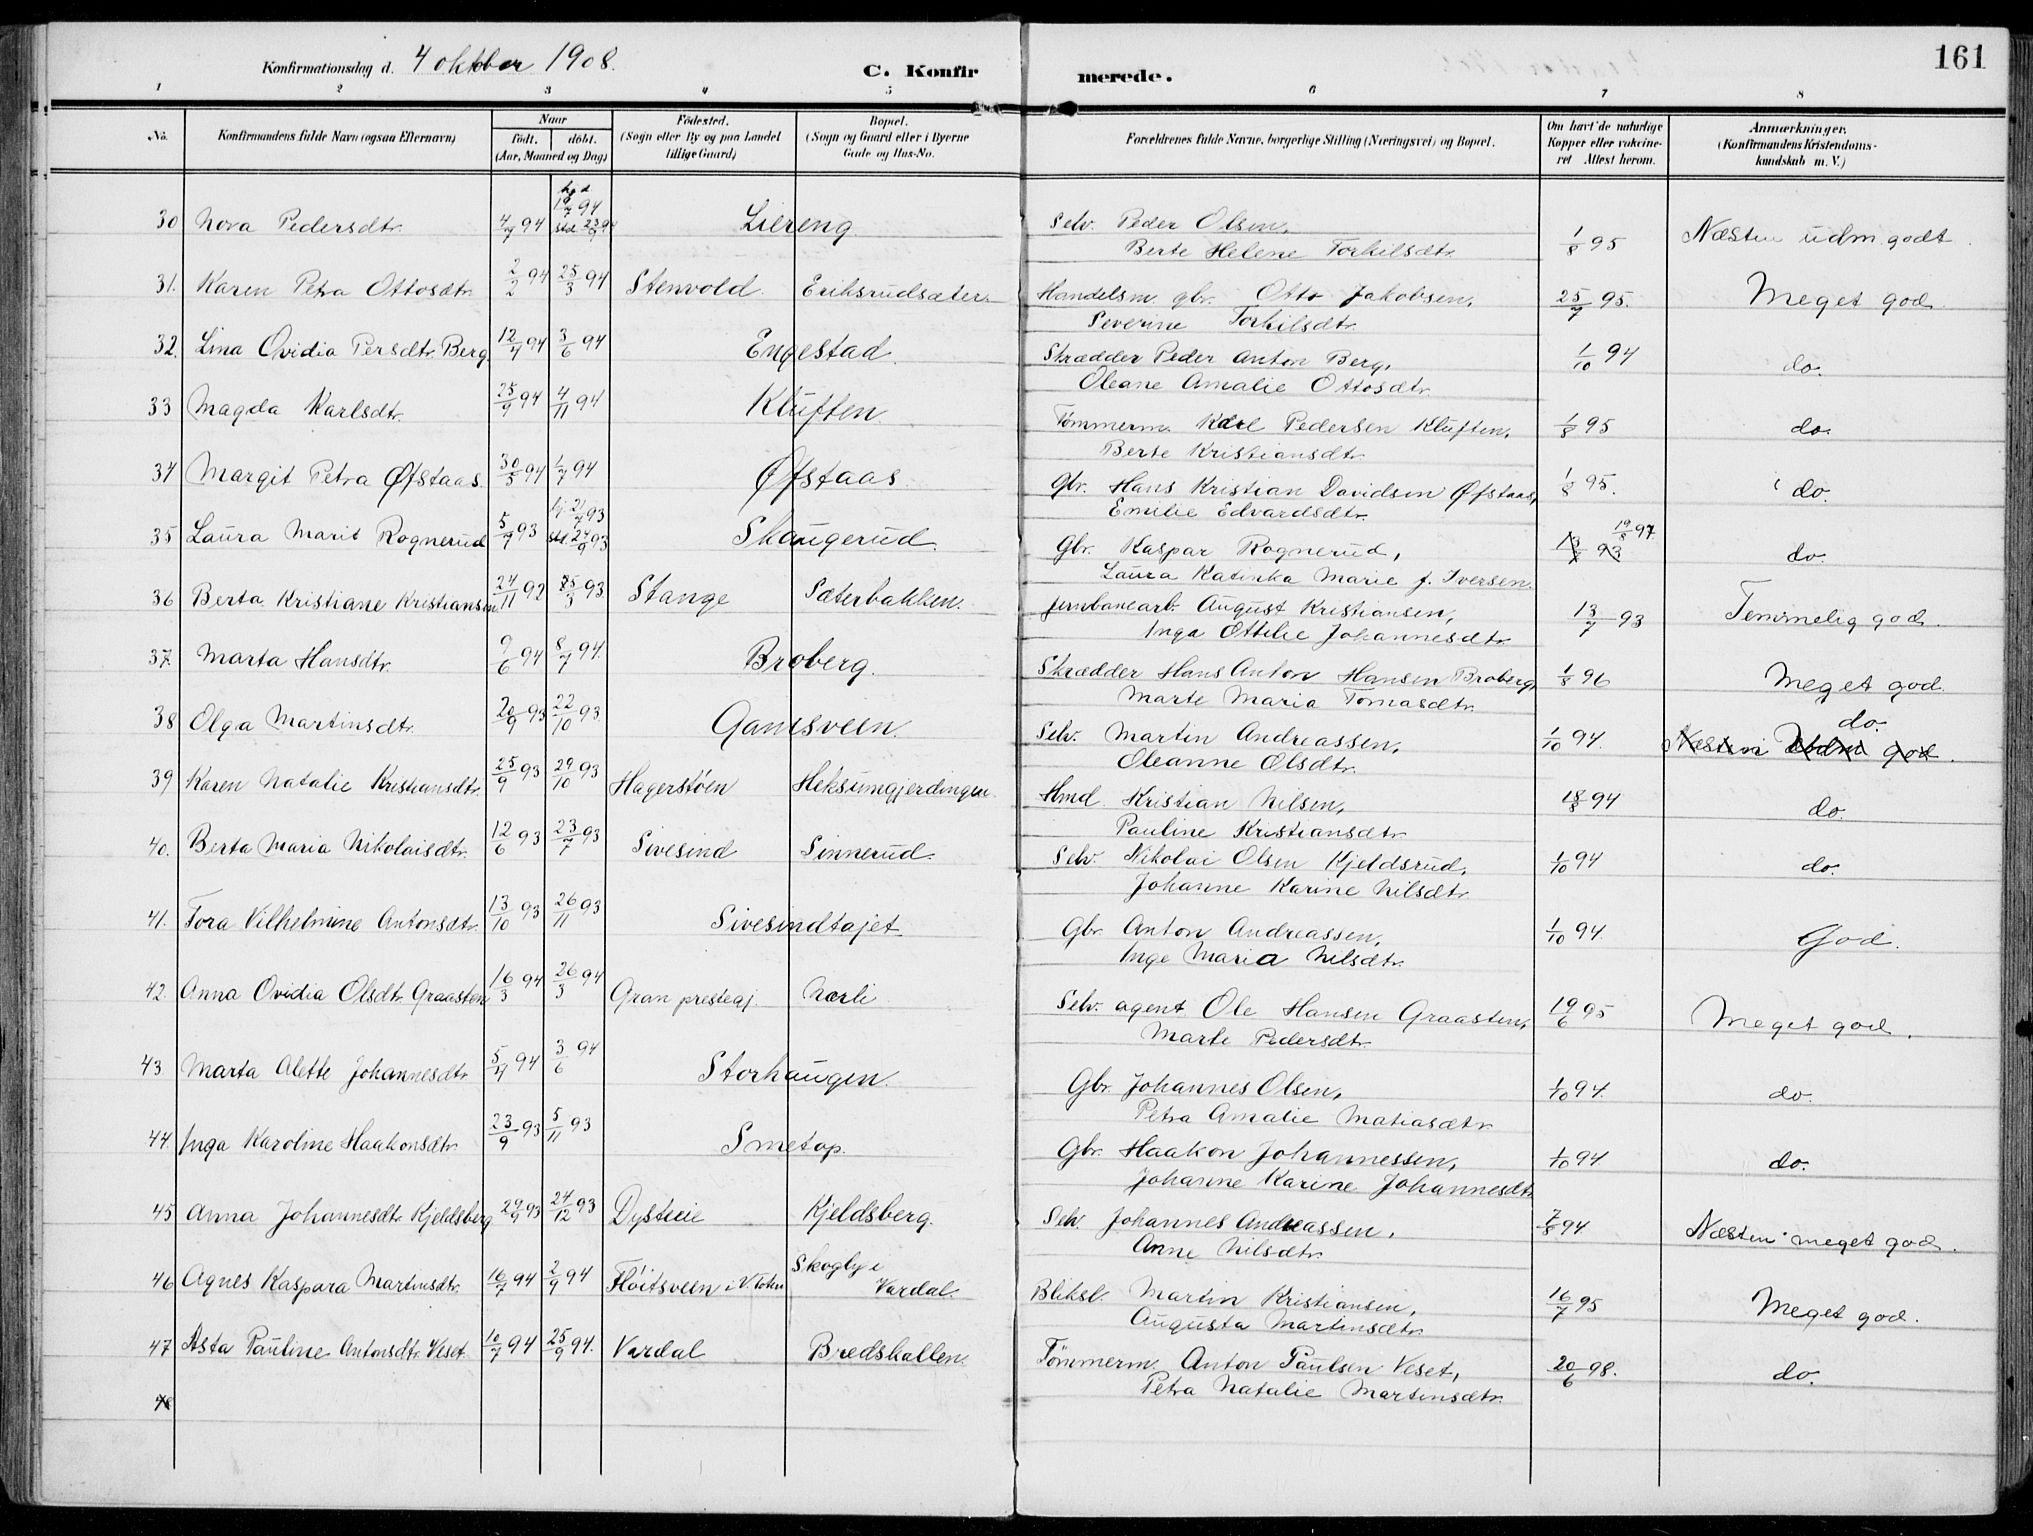 Konfirmationsdag d. 4 oktober 1908. C. Konfirmerede. 161
1 2 3 4 5 6 7 8
No. Konfirmandens fulde Navn (ogsaa Efternavn) Naar født. døbt. (Aar, Maaned og Dag) Fødested. (Sogn eller By og paa Landet tillige Gaard) Bopæl. (Sogn og Gaard eller i Byerne Gade og Hus-No. Forældrenes fulde Navne, borgerlige Stilling (Næringsvei) og Bopæl. Om havt de naturlige Kopper eller vakcineret Attest herom. Anmærkninger. (Konfirmandens Kristendomskundskab m. V.)
30 Nora Pedersdtr. 4/7 94 hjd 19/7 94 std. 23/9 94 Liereng Selv. Peder Olsen, 1/8 95 Næsten udm. godt
Berte Helene Torkilsdtr.
31. Karen Petra Ottosdtr. 2/2 94 25/3 94 Stenvold Eriksrudsæter Handelsm. gbr. Otto Jakobsen, 25/7 95. Meget god
Severine Torkilsdtr.
32. Lina Ovidia Persdtr. Berg 12/4 94 3/6 94 Engestad Skrædder Peder Anton Berg, 1/10 94 do.
Oleane Amalie Ottosdtr.
33 Magda Karlsdtr. 25/9 94 4/11 94 Kluften Tømmerm. Karl Pedersen Kluften, 1/8 95 do.
Berte Kristiansdtr.
34 Margit Petra Øfstaas. 30/5 94 1/7 94 Øfstaas Gbr. Hans Kristian Davidsen Øfstaas, 1/8 95. do.
Emilie Edvardsdtr.
35 Laura Marit Rognerud 5/7 93 hj. 21/7 93 std. 24/9 93 Skaugerud Gbr. Kaspar Rognerud, 13/7 93 19/8 97 do.
Laura Katinka Marie f. Iversen
36 Berta Kristiane Kristiansen 24/11 92 25/3 93 Stange Sæterbakken. Jernbanearb. August Kristiansen, 13/7 93 Temmelig god.
Inga Ottilie Johannesdtr.
37. Marta Hansdtr. 9/6 94 8/7 94 Broberg. Skrædder Hans Anton Hansen Broberg, 1/8 96 Meget god.
Marte Maria Tomasdtr.
38 Olga Martinsdtr. 20/9 93 22/10 93 Gamsveen Selv. Martin Andreassen, 1/10 94. Næsten Udm. god. do.
Oleanne Olsdtr.
39 Karen Natalie Kristiansdtr. 25/9 93 29/10 93 Hagerstøen Heksumgjerdingen. Hmd. Kristian Nilsen, 18/8 94 do.
Pauline Kristiansdtr.
40. Berta Maria Nikolaisdtr. 12/6 93 23/7 93 Sivesind Sinnerud. Selv. Nikolai Olsen Kjeldsrud, 1/10 94 do.
Johanne Karine Nilsdtr.
41. Tora Vilhelmine Antonsdtr. 13/10 93 26/11 93 Sivesindtajet Gbr. Anton Andreassen, 1/10 94. God.
Inge Maria Nilsdtr.
42. Anna Ovidia Olsdtr. Graasten 16/3 94 26/3 94 Gran prestegj. Narli Selv. agent Ole Hansen Graasten, 19/6 95 Meget god.
Marte Pedersdtr.
43. Marta Alette Johannesdtr. 5/4 94 3/6 94 Storhaugen. Gbr. Johannes Olsen, 1/10 94. do.
Petra Amalie Matiasdtr.
44. Inga Karoline Haakonsdtr. 23/9 93 5/11 93 Smetop. Gbr. Haakon Johannessen, 1/10 94 do.
Johanne Karine Johannesdtr.
45 Anna Johannesdtr. Kjeldsberg 29/9 93 24/12 93 Dysteie Kjeldsberg. Selv. Johannes Andreassen, 7/8 94. Næsten meget god.
Anne Nilsdtr.
46 Agnes Kaspara Martinsdtr. 16/7 94 2/9 94 Fløitsveen i V. Toten Skogly i Vardal. Bliksl. Martin Kristiansen, 16/7 95 Meget god.
Augusta Martinsdtr.
47 Asta Pauline Antonsdtr. Veset 10/7 94 25/9 94. Vardal Bredshallen. Tømmerm. Anton Paulsen Veset, 20/6 98. do.
Petra Natalie Martinsdtr.
48